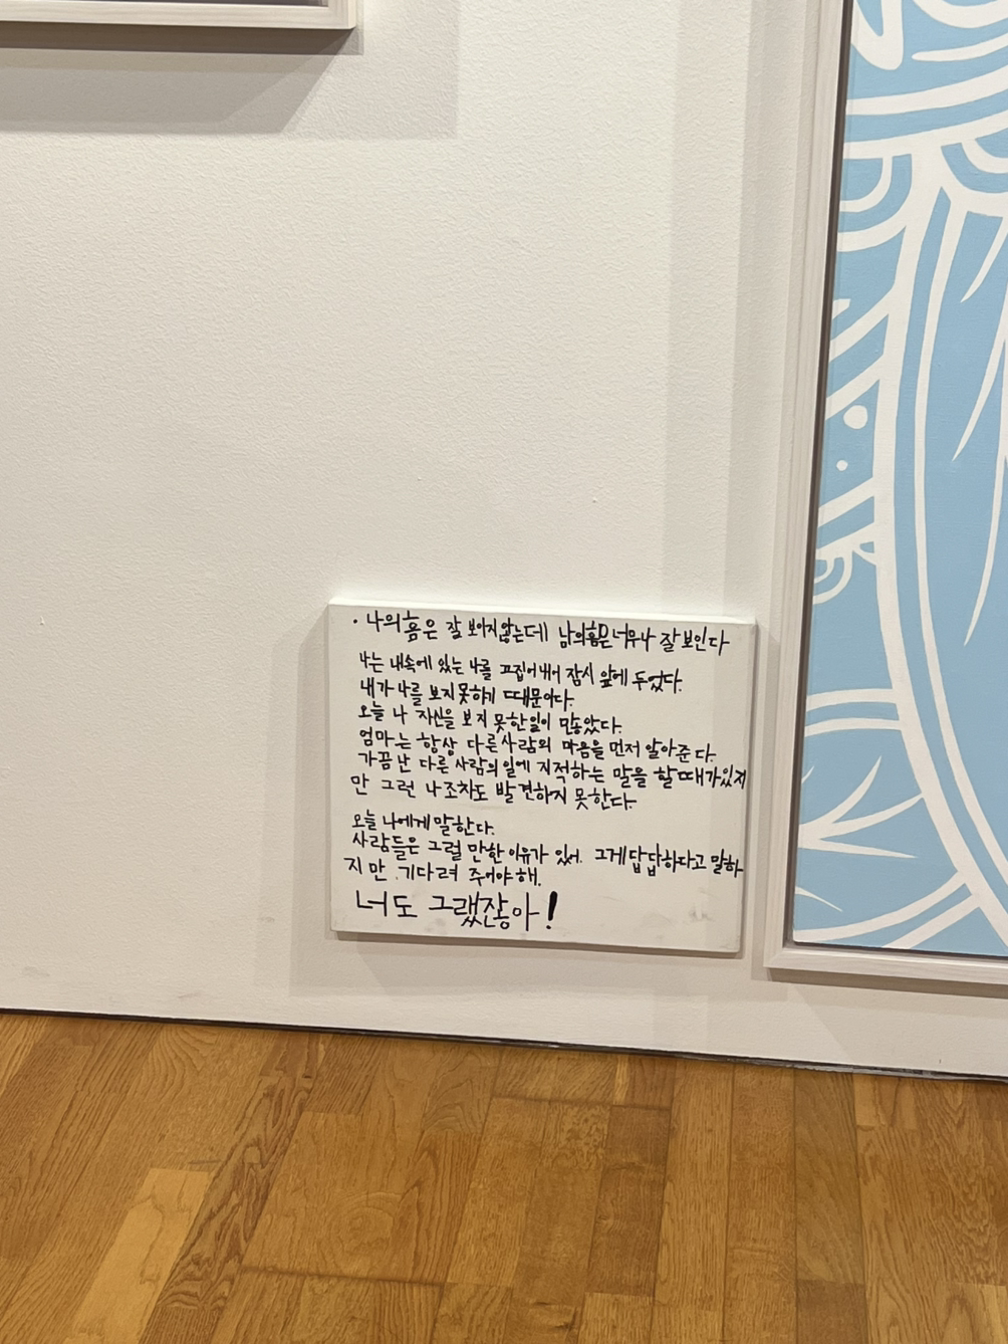 · 나의 흠은 잘 보이지않는데 남의흠은 너무나 잘 보인다
나는 내속에 있는 나를 끄집어내어 잠시 앞에 두었다.
내가 나를 보지못하기 때문이다.
오늘 나 자신을 보지 못한일이 많았다.
엄마는 항상 다른사람의 마음을 먼저 알아준다.
가끔 난 다른 사람의 일에 지적하는 말을 할때가있지
만 그런 나조차도 발견하지 못한다.
오늘 나에게 말한다.
사람들은 그럴 만한 이유가 있어. 그게 답답하다고 말하
지만 기다려 주어야 해.
너도 그랬잖아!